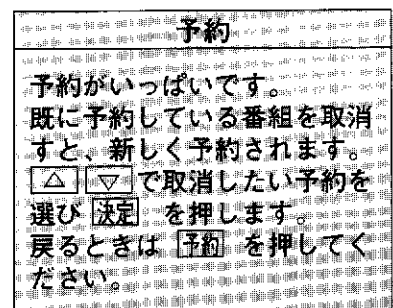 予約
予約がいっぱいです。
既に予約している番組を取消
すと、新しく予約されます。
△ ▽ で取消したい予約を
選び 決定 を押します。
戻るときは 予約 を押してく
ださい。